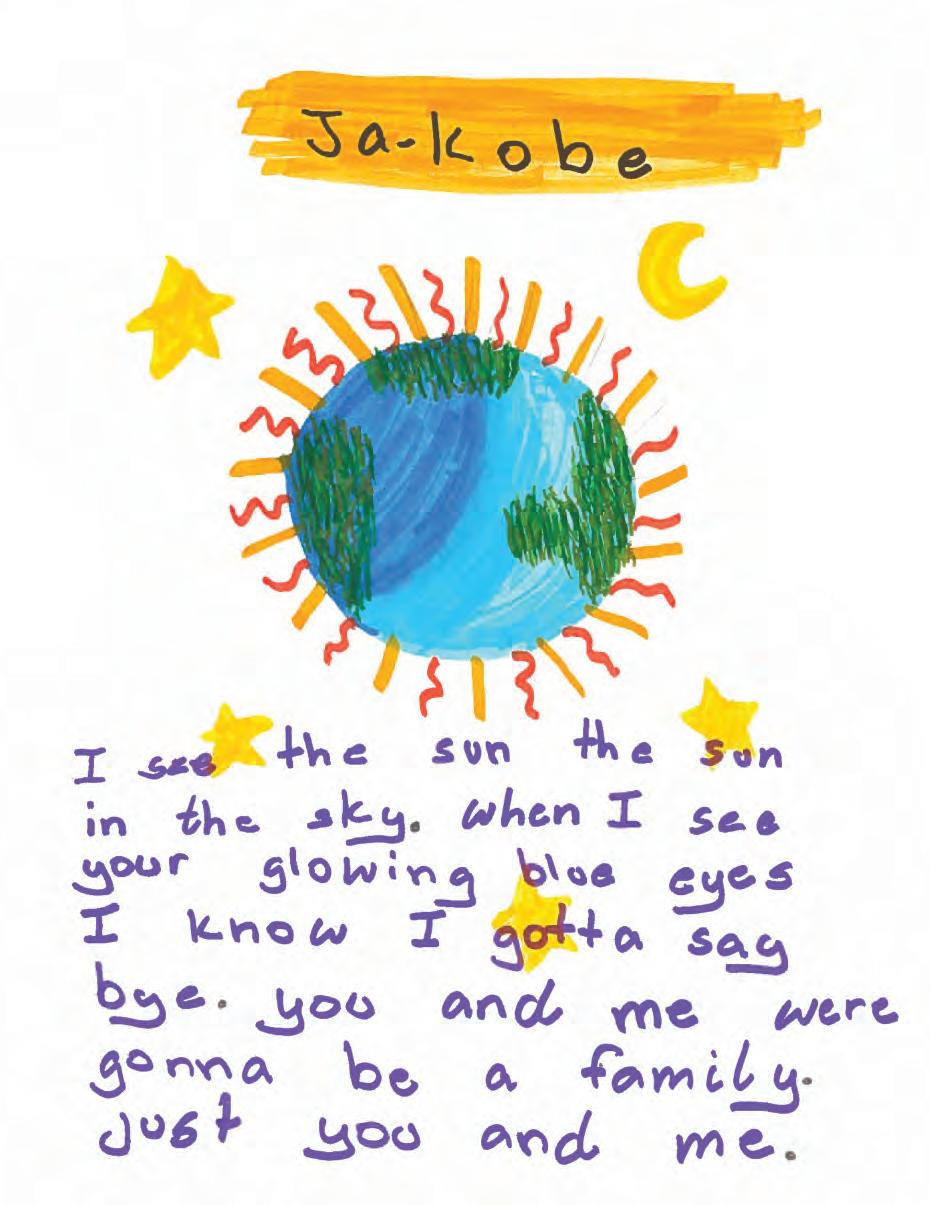 Ja-kobe
I see the sun the sun
in the sky. when I see
your glowing blue eyes
I know I gotta say
bye. you and me were
gonna be a family.
just you and me.